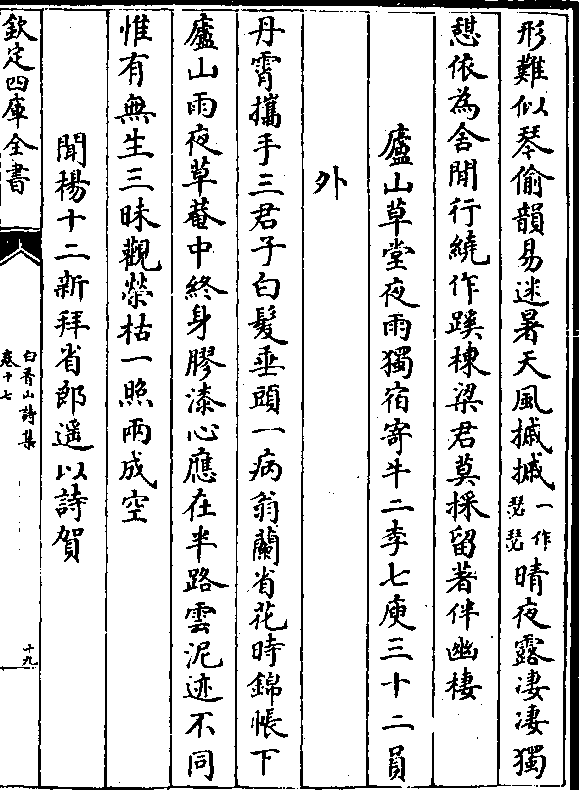 形難似琴偷韻易迷暑天風摵摵一作瑟瑟晴夜露凄凄獨
憇依為舍閒行繞作蹊棟梁君莫採留著伴幽棲
廬山草堂夜雨獨宿寄牛二李七庾三十二員
外
丹霄攜手三君子白髮垂頭一病翁蘭省花時錦帳下
廬山雨夜草菴中終身膠漆心應在半路雲泥迹不同
惟有無生三昧觀榮枯一照兩成空
聞楊十二新拜省郎遥以詩賀
欽定四庫全書
白香山詩集
卷十七
十九